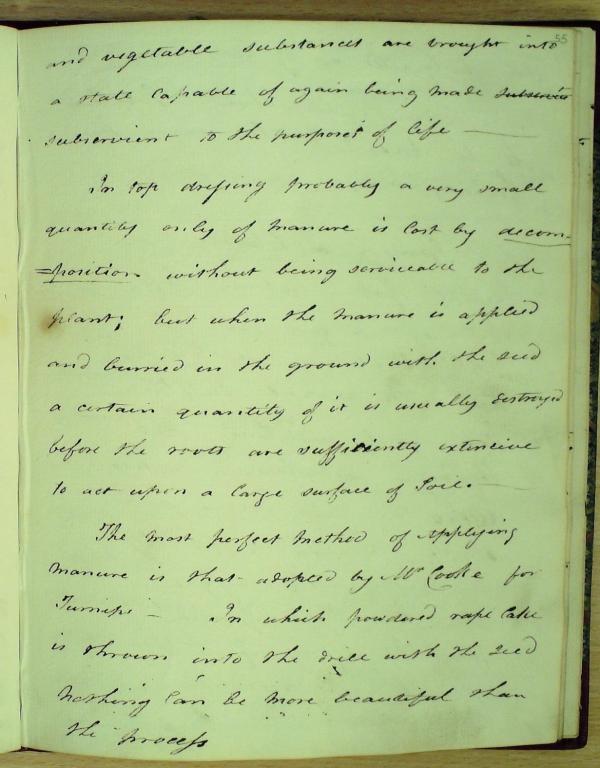 55
and vegetable substances are brought into
a state capable of again being made subservie
subservient to the purposes of life —
In top dressing probably a very small
quantity only of manure is lost by decom-
=position without being serviceable to the
plant; but when the manure is applied
and burried in the ground with the seed
a certain quantity of it is usually destroyed
before the roots are sufficiently extencive
to act upon a large surface of Soil. —
The most perfect method of applying
manure is that adopted by Mr Cooke for
Turnips — In which powdered rape Cake
is thrown into the drill with the seed
nothing Can be more beautiful than
the process